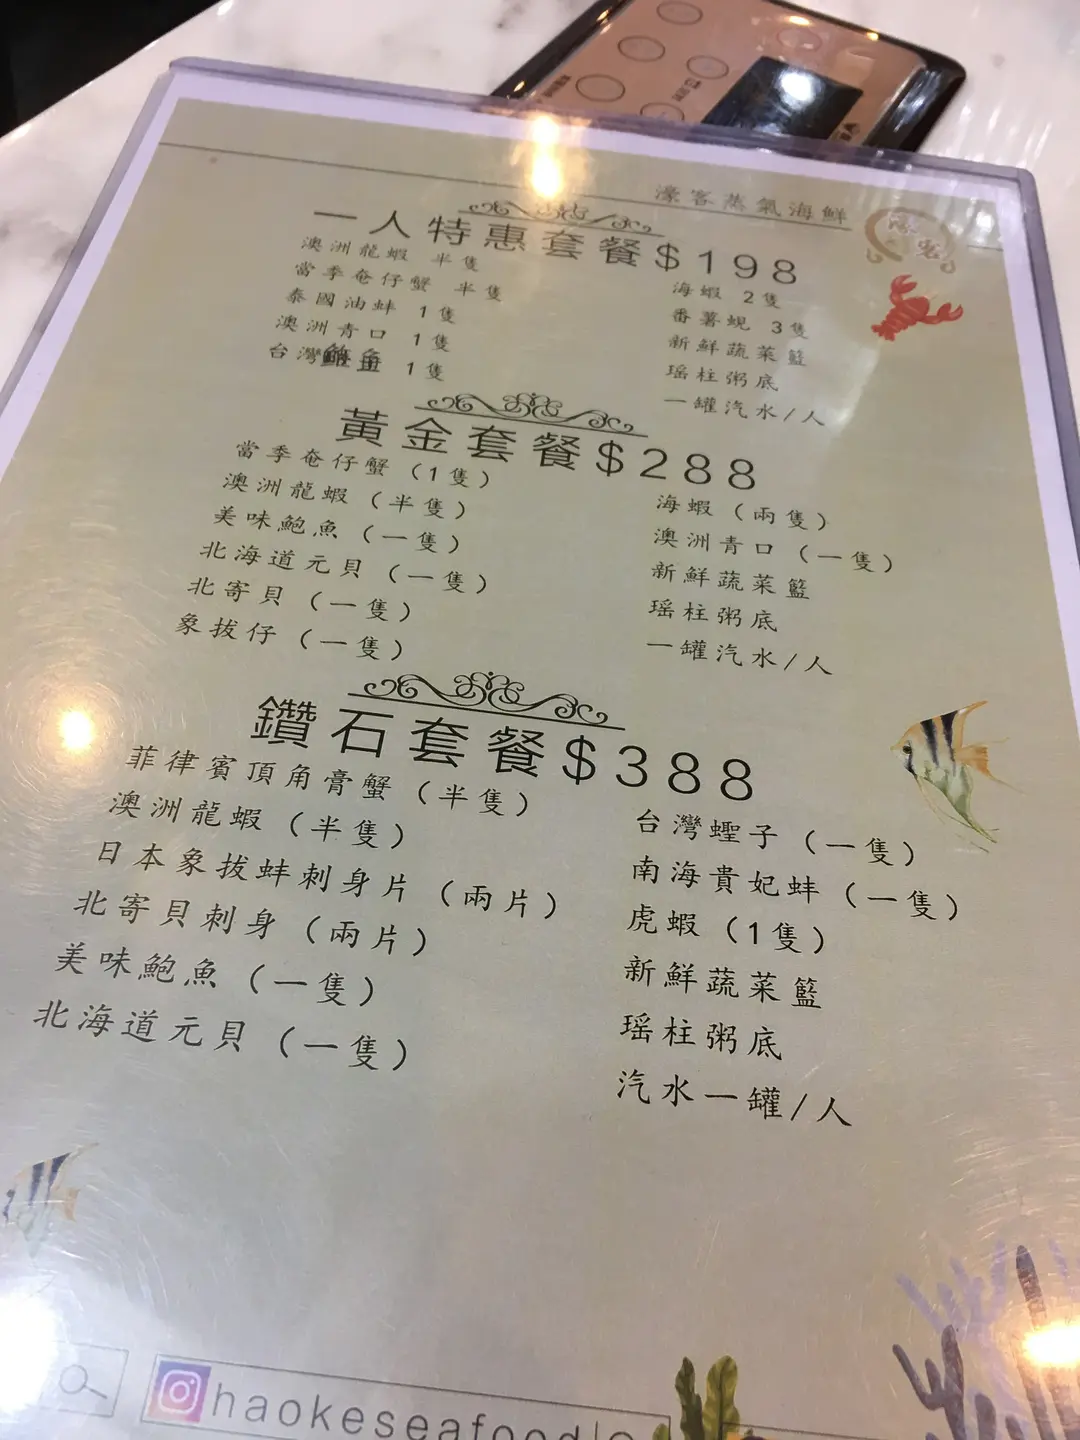 濠客蒸氣海鮮
濠客
一人特惠套餐$198
澳洲龍蝦 半隻
當季奄仔蟹 半隻
泰國油蚌 1隻
澳洲青口 1隻
台灣鮑魚 1隻
海蝦 2隻
番薯蜆 3隻
新鮮蔬菜籃
瑶柱粥底
一罐汽水/人
黃金套餐$288
當季奄仔蟹(1隻)
澳洲龍蝦(半隻)
美味鮑魚(一隻)
北海道元貝(一隻)
北寄貝(一隻)
象拔仔(一隻)
海蝦(兩隻)
澳洲青口(一隻)
新鮮蔬菜籃
瑶柱粥底
一罐汽水/人
鑽石套餐$388
菲律賓頂角膏蟹(半隻)
澳洲龍蝦(半隻)
日本象拔蚌刺身片(兩片)
北寄貝刺身(兩片)
美味鮑魚(一隻)
北海道元貝(一隻)
台灣蟶子(一隻)
南海貴妃蚌(一隻)
虎蝦(1隻)
新鮮蔬菜籃
瑶柱粥底
汽水一罐/人
haokeseafood